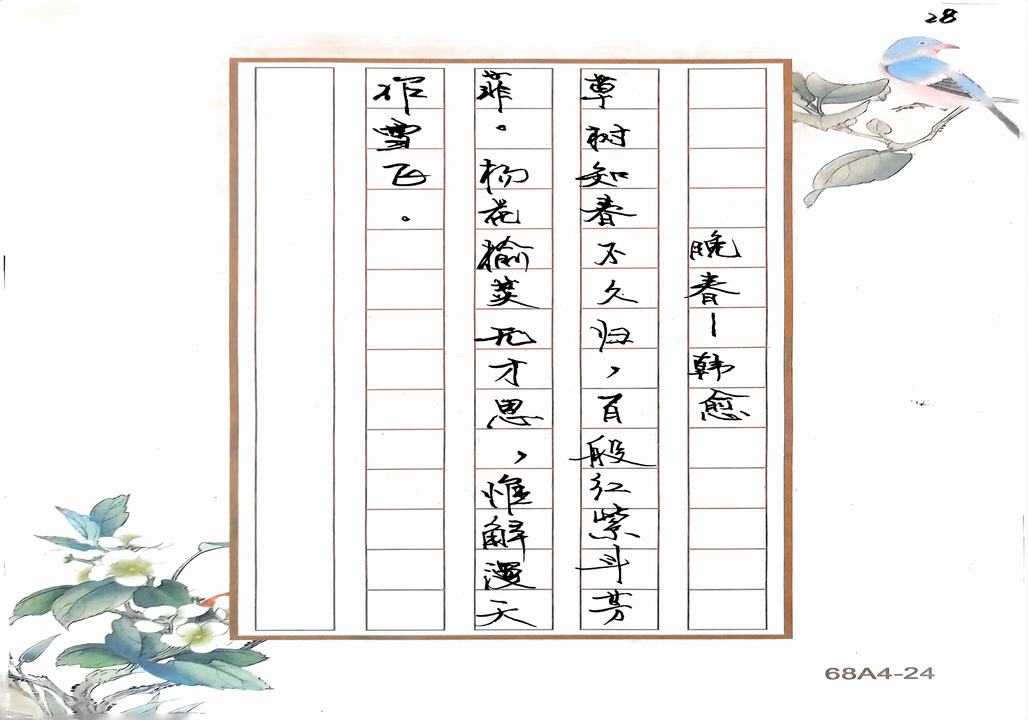 28
晚春－韩愈
草树知春不久归，百般红紫斗芳
菲。杨花榆荚无才思，惟解漫天
作雪飞。
68A4-24